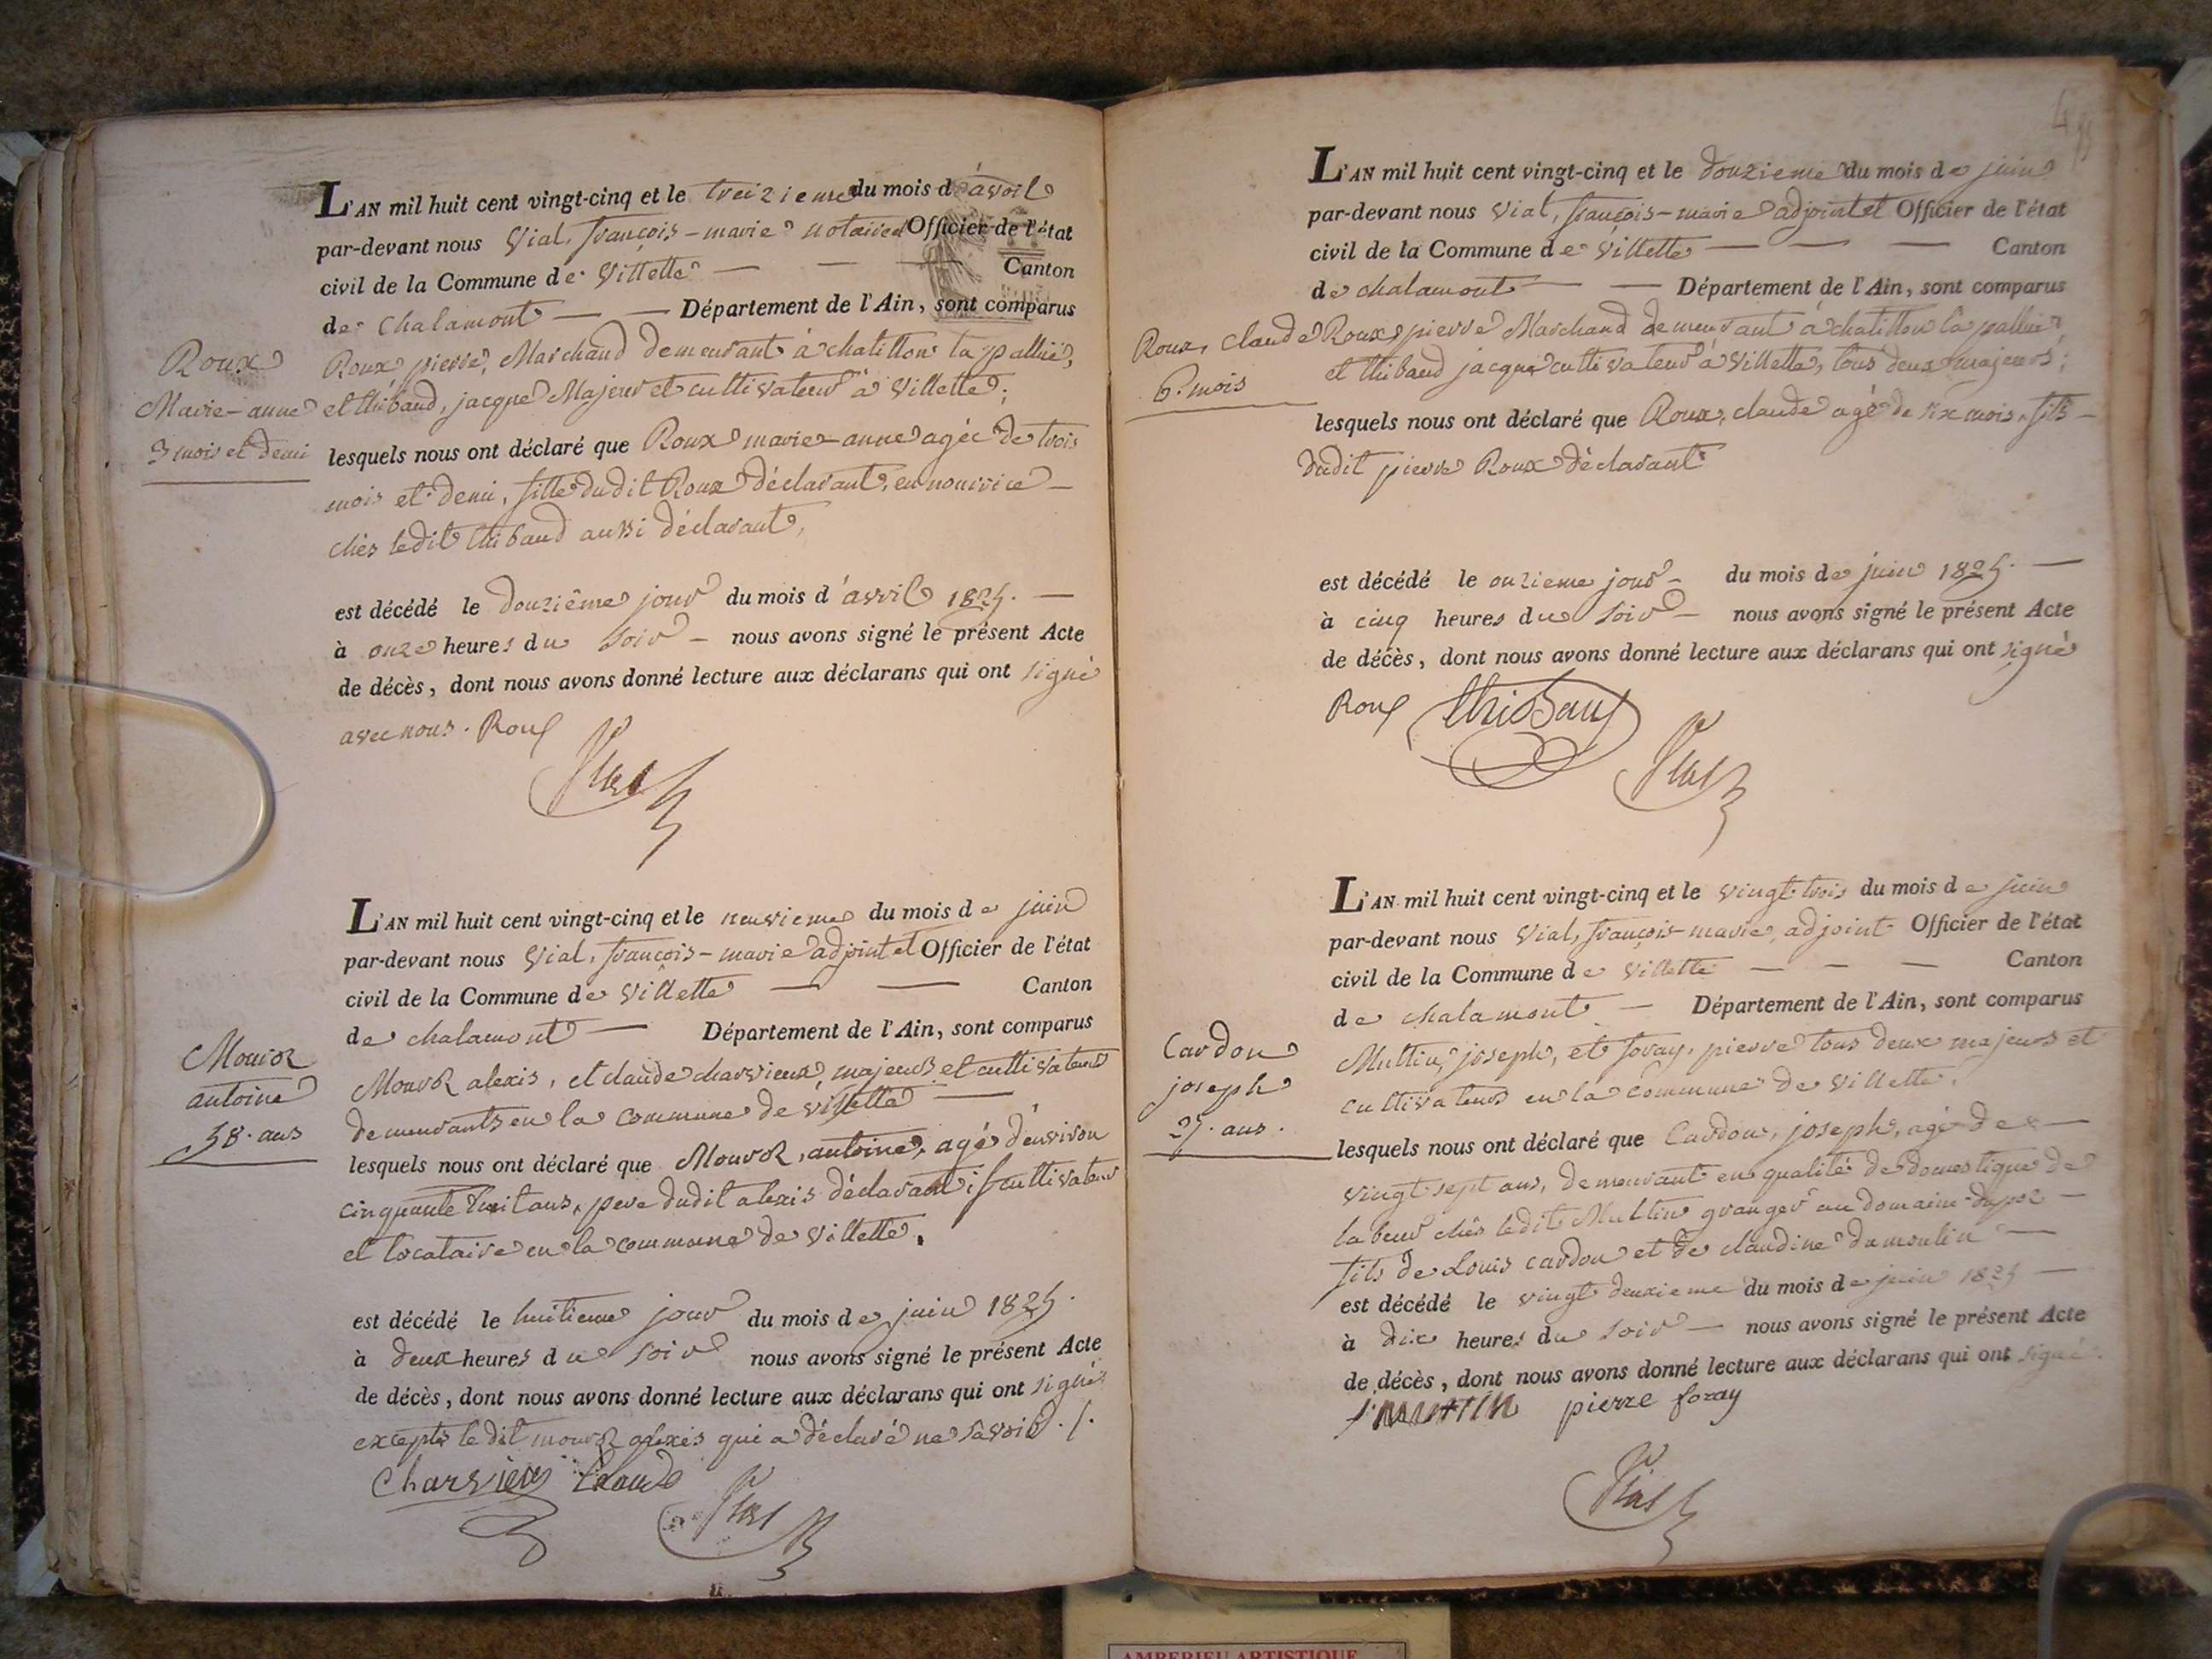 L'AN mil huit cent vingt-cinq et le treizieme du mois d'avril
par-devant nous Vial, françois-marie notaire Officier de l'état
civil de la Commune de Villette — — — Canton
de Chalamont — — Département de l'Ain, sont comparus
Roux pierre, Marchand demeurant à chatillon la pallüe,
et thibaud, jacque Majeur et cultivateur à Villette;
lesquels nous ont déclaré que Roux marie-anne agée de trois
mois et demi, fille dudit Roux déclarant, en nourrice —
chés ledit thibaud aussi déclarant,
est décédé le douziême jour du mois d'avril 1825. —
à onze heures du soir — nous avons signé le présent Acte
de décès, dont nous avons donné lecture aux déclarans qui ont signé
avec nous. Roux
Vial
Roux
Marie-anne
3 mois et demi
L'AN mil huit cent vingt-cinq et le neuvieme du mois de juin
par-devant nous Vial, françois-marie adjoint et Officier de l'état
civil de la Commune de Villette — — Canton
de chalamont — Département de l'Ain, sont comparus
alexis, et claude charvieux, majeurs et cultivateurs
demeurants en la commune de villette —
lesquels nous ont déclaré que antoine, agé d'environ
cinquante huit ans, pere dudit alexis déclarant; cultivateur
et locataire en la commune de Villette.
est décédé le huitieme jour du mois de juin 1825.
à deux heures du soir nous avons signé le présent Acte
de décès, dont nous avons donné lecture aux déclarans qui ont signés
excepté le dit alexis qui a déclaré ne savoir ./.
Charvieux Claude
Vial
antoine
58. ans
L'AN mil huit cent vingt-cinq et le douzieme du mois de juin
par-devant nous Vial, françois-marie adjoint et Officier de l'état
civil de la Commune de Villette — — — Canton
de chalamont — — Département de l'Ain, sont comparus
Roux, pierre Marchand demeurant à chatillon la pallüe,
et thibaud jacque cultivateur à Villette, tous deux majeurs;
lesquels nous ont déclaré que Roux, claude agé de six mois, fils —
dudit pierre Roux déclarant
est décédé le onzieme jour — du mois de juin 1825. —
à cinq heures du soir — nous avons signé le présent Acte
de décès, dont nous avons donné lecture aux déclarans qui ont signé
Roux thibaud
Vial
Roux, claude
6. mois
L'AN mil huit cent vingt-cinq et le vingt-trois du mois de juin
par-devant nous Vial, françois-marie, adjoint Officier de l'état
civil de la Commune de Villette — — — Canton
de chalamont — Département de l'Ain, sont comparus
Multin, joseph, et foray, pierre tous deux majeurs et
cultivateurs en la commune de Villette,
lesquels nous ont déclaré que Cardon, joseph, agé de —
vingt sept ans, demeurant en qualité de domestique de
labeur chés ledit Multin granger au domaine —
fils de Louis cardon et de claudine dumoulin —
est décédé le vingt deuxieme du mois de juin 1825 —
à dix heures du soir — nous avons signé le présent Acte
de décès, dont nous avons donné lecture aux déclarans qui ont signé.
pierre foray
Vial
Cardon
joseph
27. ans.
AMBERIEU ARTISTIQUE